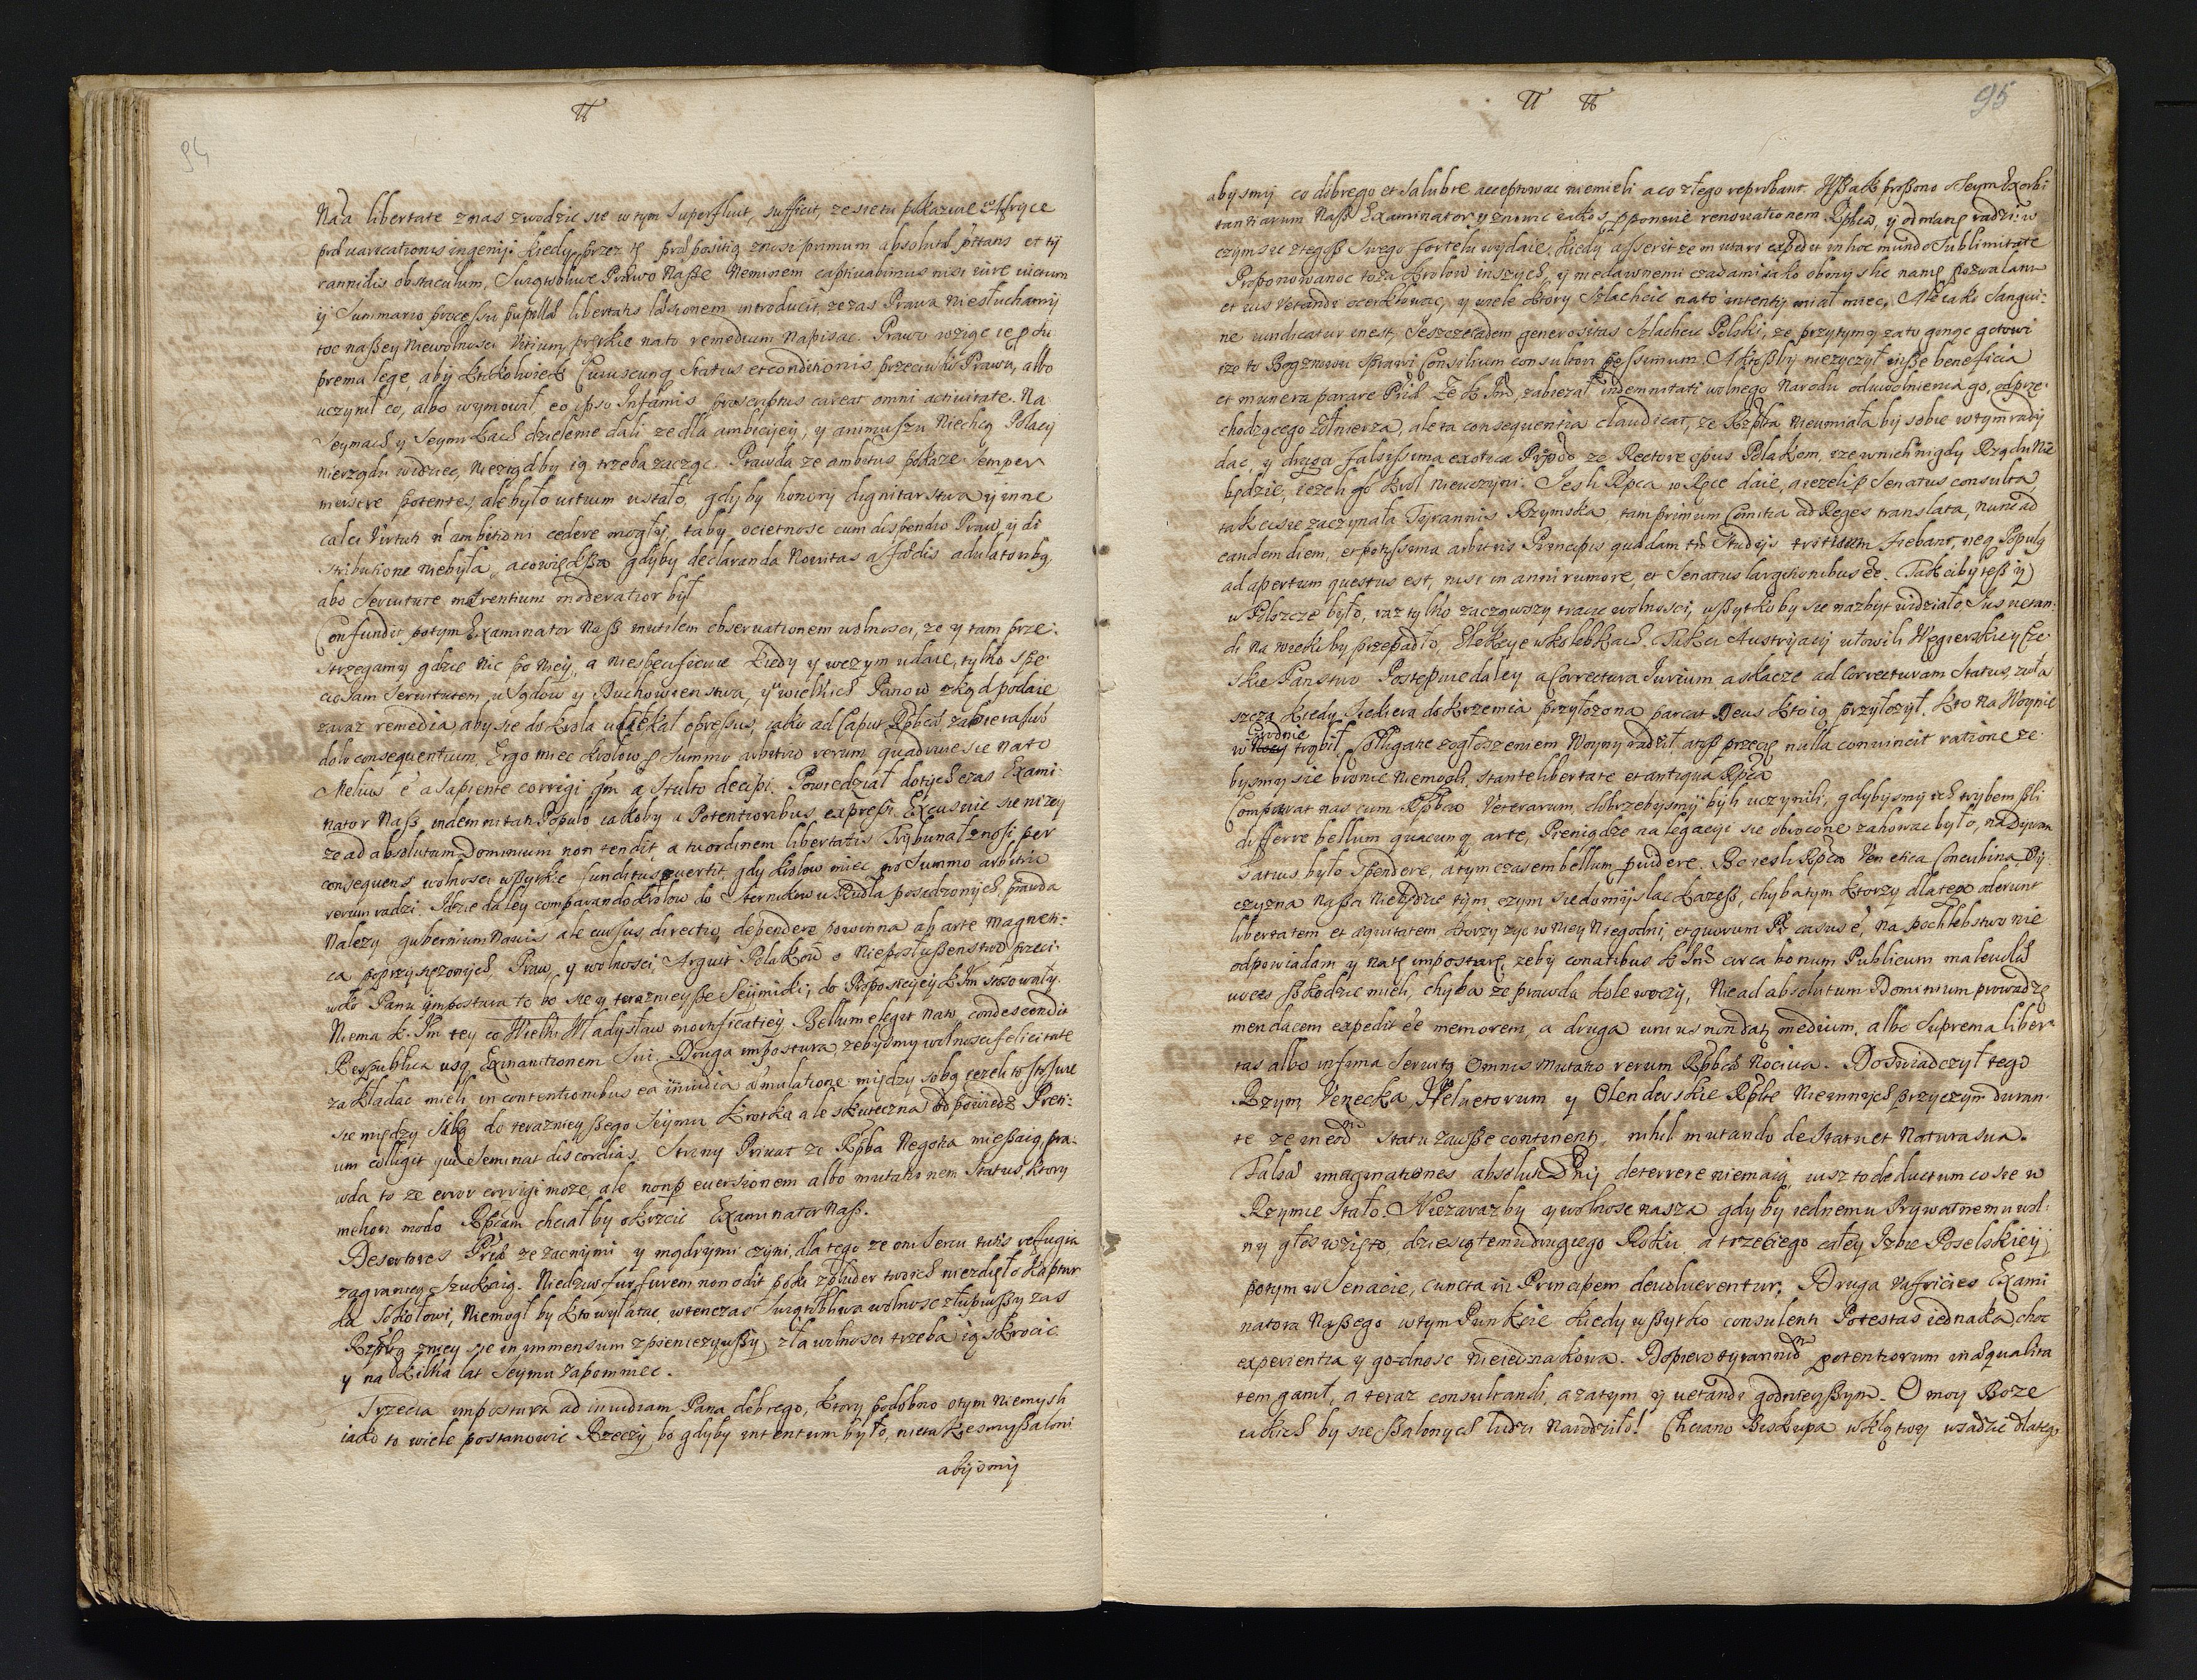 94
Naa libertate z nas zwodzic sie w tym superfluit, sufficit, ze sie tu pokazuie
praevaricationis ingenij. Kiedy przez tę praepositią znosi primum absoluta et ty
rannidis obstaculum, Prawo Nasze Neminem captivabimus nisi iure victum
ij Summario processu libertatis introducit, ze zas Prawa niesłuchamy
toc naszey Niewolnosci Vitium, prętkie na to remedium Napisac. Prawo wziąc
prema lege, aby ktokolwiek Cuiuscunq status et conditionis przeciwko Prawu, albo
uczynił co, albo wymowił, eo ipso Infamis proscriptus careat omni activitate. Na
Seymach y Seymikach dzielenie dali ze dla ambicyey, y animuszu Niechcą Polacy
nierządu widziec, niezigdby ią trzeba zacząc. Prawda ze ambitus pokaze semper
potentes, ale było ustało, gdyby honory dignitarstwa y inne
calei Virtuti ambitioni cedere mogły, taby ocietnosc cum dispendio Praw, y di
stributione niebyła, a co większa gdyby declaranda Novitas a faedis adulatorib9
abo Serviture moderatior był
Confundit potym Examinator Nasz mutilem observationem wolnosci, ze y tam prze:
strzegamy gdzie nic po Niey, a niespecificuie Kiedy y w czym udaie, tylko spe:
ciosam Servitutem, u Sądow y Duchowienstwa, y u wielkich Panow zkąd podaie
zaraz remedia, aby sie do krola uciekał opressus, iako ad Caput Rpbcae,
dolo consequentium, Ergo miec krolow p Summo arbitrio rerum quadruie sie na to
Melius ē a Sapiente corrigi qm a Stulto decipi. Powiedział dotych czas Exami:
nator Nasz indemnitati Populo iakoby a Potentioribus expressi. Excusuie sie nizey
ze ad absolutum Dominium non tendit, a tu ordinem libertatis Trybunał znosi, per
consequens wolnosci wszytkie funditus evertit, gdy krolow miec pro Summo arbitrio
rerum radzi. Idzie daley comparando krolow do Sternikow u Rudla posadzonych, prawda
Nalezy gubernium Navis ale cursus directio, dependere powinna ab arte magneti:
ca poprzysięzonych Praw, y wolnosci, Arguit Polakow o Nieposłuszenstwo przeci:
wko Panu impostura to bo sie y teraznieysze Seymiki, do Propositiey K Jm stosowały.
Niema K. Jm tey co Wielki Władysław mortificatiey Bellum elegit naw, condescendit
Respublica usq Exinanitionem Sui. Druga impostura, zebysmy wolnosci felicitate
zakładac mieli, in contentionibus ea invidia aemulatione między sobą ieze li to stosuie
sie między Siłą do teraznieyszego Seymu krotka ale skuteczna odpowiedz Preti:
um colligit qui Seminat discordias. Strony Privat ze Rpba Negotia mieszaią, pra:
wda to ze error corrigi moze, ale non p eversionem albo mutationem Status, ktory
meliori modo Rpcam chciałby okrzcic Examinator Nasz.
Desertores Priae ze zacnymi y mądrymi czyni, dla tego ze oni Sercu tutis refugia
zagranicą szukaią. Niedziw fur furem non odit poki z twoich niezdięto Kaptur
ka Sokołowi, Niemogł by kto wyłatac, wtenczas wolnosc złupiwszy zas
Rzpltą z niey sie in immensum zpieniezywszy, zła wolnosci trzeba ią skrocic
y na kilka lat Seymu zapomniec.
Trzecia impostura ad invidiam Pana dobrego, ktory podobno o tym niemysli
iako to wiele postanowic Rzeczy, bo gdyby intentum było, nie takiesmy
abysmy
95
abysmy co dobrego et salubre acceptowac niemieli a co złego reprobant. Wszak proszono o Seym Exorbi
tantiarum Nasz Examinator y znowu iakos proponuie renovationem Rpbca, y odmianę radzi: w
czym sie ztegosz Swego fortelu wydaie, kiedy asserit ze mutari expedit in hoc mundo Sublimitate
Proponowanoc to za krolow inszych, y niedawnemi czasami iako obmyslic namę pozwalam
et ius Vetandi ocerklowac, y wiele ktory Szlachcic na to intenty miał miec, Ale iako Sangui:
ne vindicatur inest, Jeszcze eadem generositas Szlachcie Polski, ze przytymy zato gingc gotowi
ize to Bog znowu sprawi Consilium consultori pessimum. A ktoszby niezyczył insze beneficia
et munera parare Priae. Ze k Jm, zabiezał indemnitati wolnego Narodu odwolnienia go, odprze:
chodzącego Zołnierza, ale ta consequentia claudicat, ze Rzplta nieumiała by sobie w tym rady
dac, y druga falsissima exotica ze Rectore opus Polakom, ize w nich nigdy Rządu nie
będzie, iezeli go Krol nieuczyni. Jesli Rpca w Rpce daie, a iezeli p Senatus consulta,
tak cisie zaczynała Tyrannis Rzymska, tam primum Comitia ad Reges translata, nunc ad
eandem diem, et potissima arbitris Principis quadam Studijs tributum fiebant, neq Populq
ad apertum questus est, nisi in anni rumore, et Senatus largitionibus ēc. Tak ciby tesz y
w Polszcze było, raz tylko zacząwszy tracic wolnosci, wszytko by sie nazbyt widziało Jus vetan:
di na wieki by przepadło, Elekcye w kolebkach. Takci Austryacy ułowili Węgierskie y Cze:
skie Panstwo. Postępuie daley a Correctura Jurium a skacze ad Correcturam Status, zwła
szcza kiedy Siekiera do krzemia przyłozona parcat Deus kto ią przyłozył. kto na Woynie
Grodnie
w Nocy trąbił Colligatie zogłoszeniem Woyny radził, atosz przecię nulla convincit ratione ze:
bysmy sie bronic niemogli, stante libertate et antiqua Rpca
Comparat nas cum Rpbca Veterarum, dobrzebysmy byli uczynili, gdybysmy ich trybem szli
differre bellum quacunq arte, Pieniądze na legacye sie obrocone zahowac było, na Dywan
satius było spendere, a tym czasem bellum prudere. Be iesli Rpca Venetica Concubina Oy
czyzna Nasza Nieżydzie tym, czym sie domyslac kazesz, chyba tym ktorzy dlatego oderunt
libertatem et aequitatem, ktorzy zyc w Niey Niegodni, et quorum casus ē, na pochlebstwo nie
odpowiadam y natę imposturę, zeby conatibus k Jm circa bonum Publicum malevolis
voces szkodzic mieli, chyba ze prawda kole w oczy, Nie ad absolutum Dominium prowadzę
mendacem expedit ē'e memorem, a druga unius non dat medium, albo Suprema liber
tas albo infima Servit9 Omnis mutatio rerum Rpbcae Nociva. Doswiadczył tego
Rzym Venecka, Helvetorum y Olenderskie Rplte Nieinnych przyczym duran:
te ze in eod statu zawsze continent, nihil mutando de Statu et Natura sua.
Falsae imaginationes absoluti Dnij deterrere niemaią iusz to deductum co sie w
Rzymie Stało. Niezarazby y wolnosc nasza gdyby iednemu Prywatnemu wol:
ny głos wzięto, dziesiątemu drugiego Roku, a trzeciego całey Izbie Poselskiey,
potym w Senacie, cuncta in Principem devolverentur. Druga Vafricies Exami
natora Naszego w tym Punkcie kiedy wszytko consulenti Potestas iednaka, choc
experientia y godnosc nieiednakowa. Dopiero tyrannid potentiorum inaequalita
tem ganił, a teraz consultandi, a zatym y vetandi godnieyszym. O moy Boze
iakich by sie szalonych ludzi narodziło! Chciano Biskupa w klątwy wsadzic dlatego